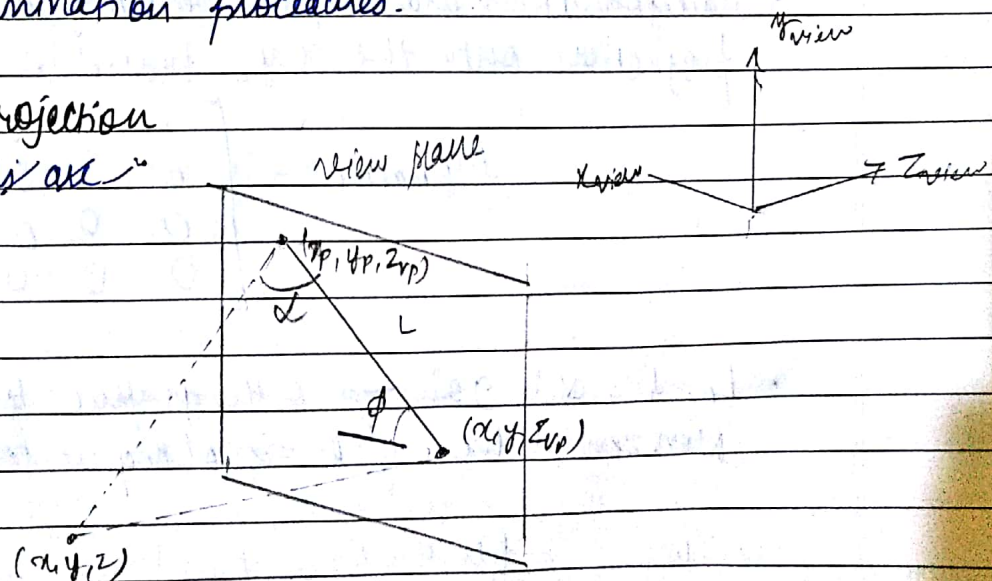 mination procedures.
y view
rojection
s are
view plane
x view
Z view
(xp, yp, Zvp)
α
L
ϕ
(x, y, Zvp)
(x, y, z)